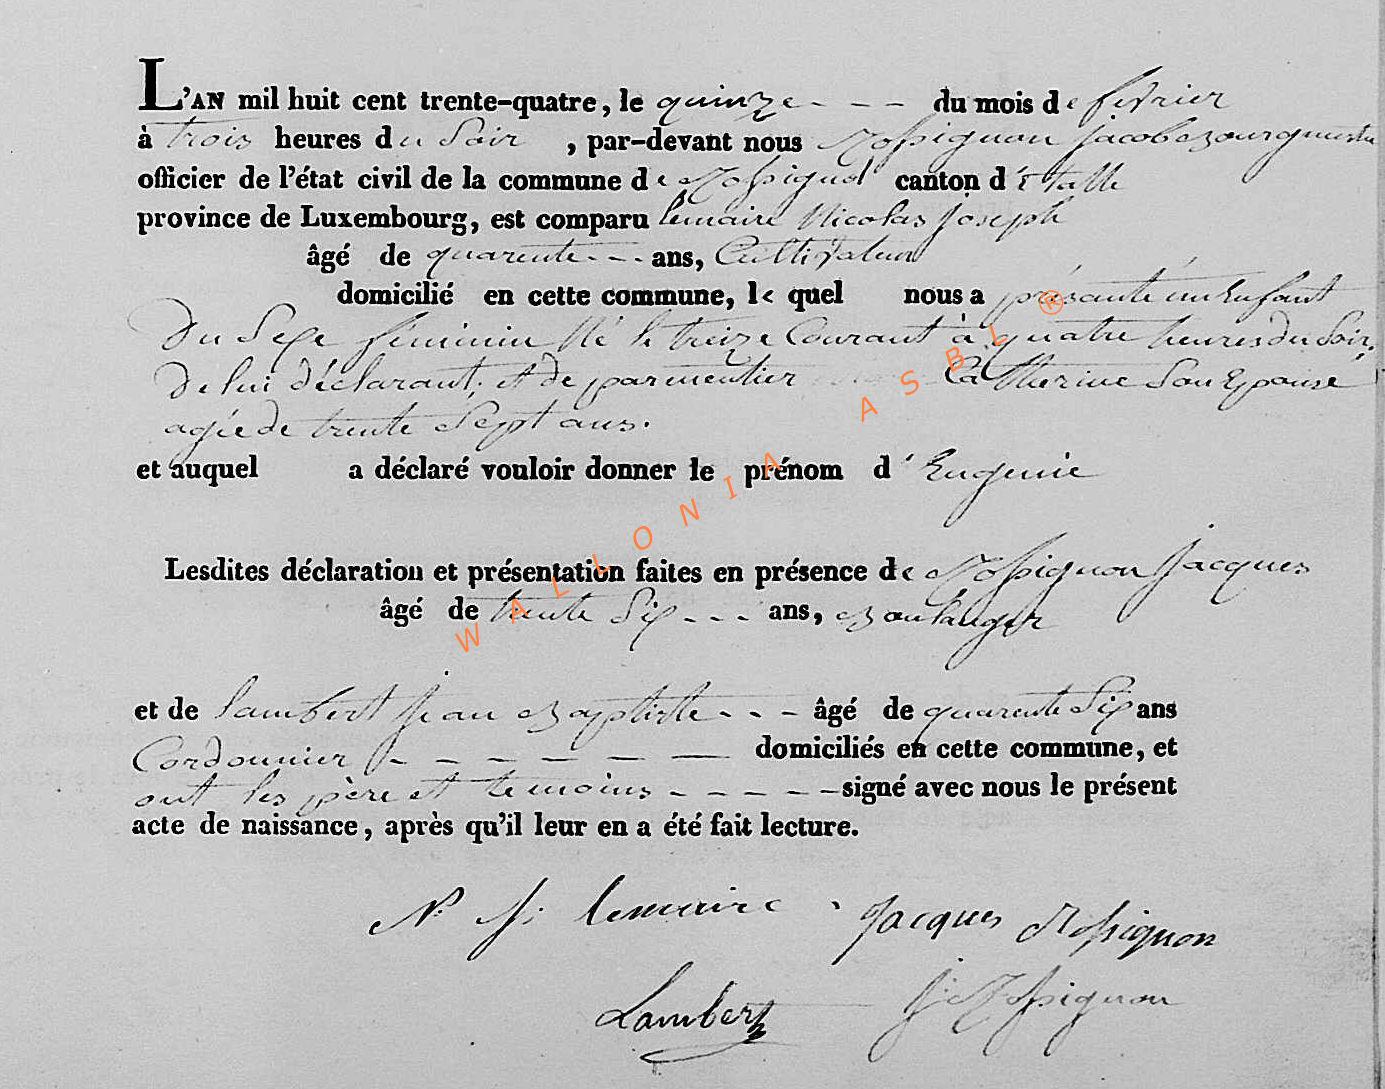 L'AN mil huit cent trente-quatre, le quinze - - - du mois de fevrier
à trois heures du Soir , par-devant nous Rossignon Jacob Bourguemestre
officier de l'état civil de la commune de Rossignol canton d'Etalle
province de Luxembourg, est comparu lemaire Nicolas Joseph
âgé de quarente - - - ans, Cultivateur
domicilié en cette commune, le quel nous a présanté un Enfant
Du Sexe féminin Né le treize Courant à quatre heures du Soir,
De lui déclarant. et de parmentier Catherine Son Epouse
agée de trente Sept ans.
et auquel a déclaré vouloir donner le prénom d' Eugenie
Lesdites déclaration et présentation faites en présence de Rossignon Jacques
âgé de trente Six - - - ans, Boulanger
et de lambert Jean Baptiste - - - âgé de quarente Six ans
Cordonnier - - - - - - domiciliés en cette commune, et
ont les père et temoins - - - - - signé avec nous le présent
acte de naissance, après qu'il leur en a été fait lecture.
N. J. lemaire Jacques Rossignon
Lambert J. Rossignon
WALLONIA ASBL ®